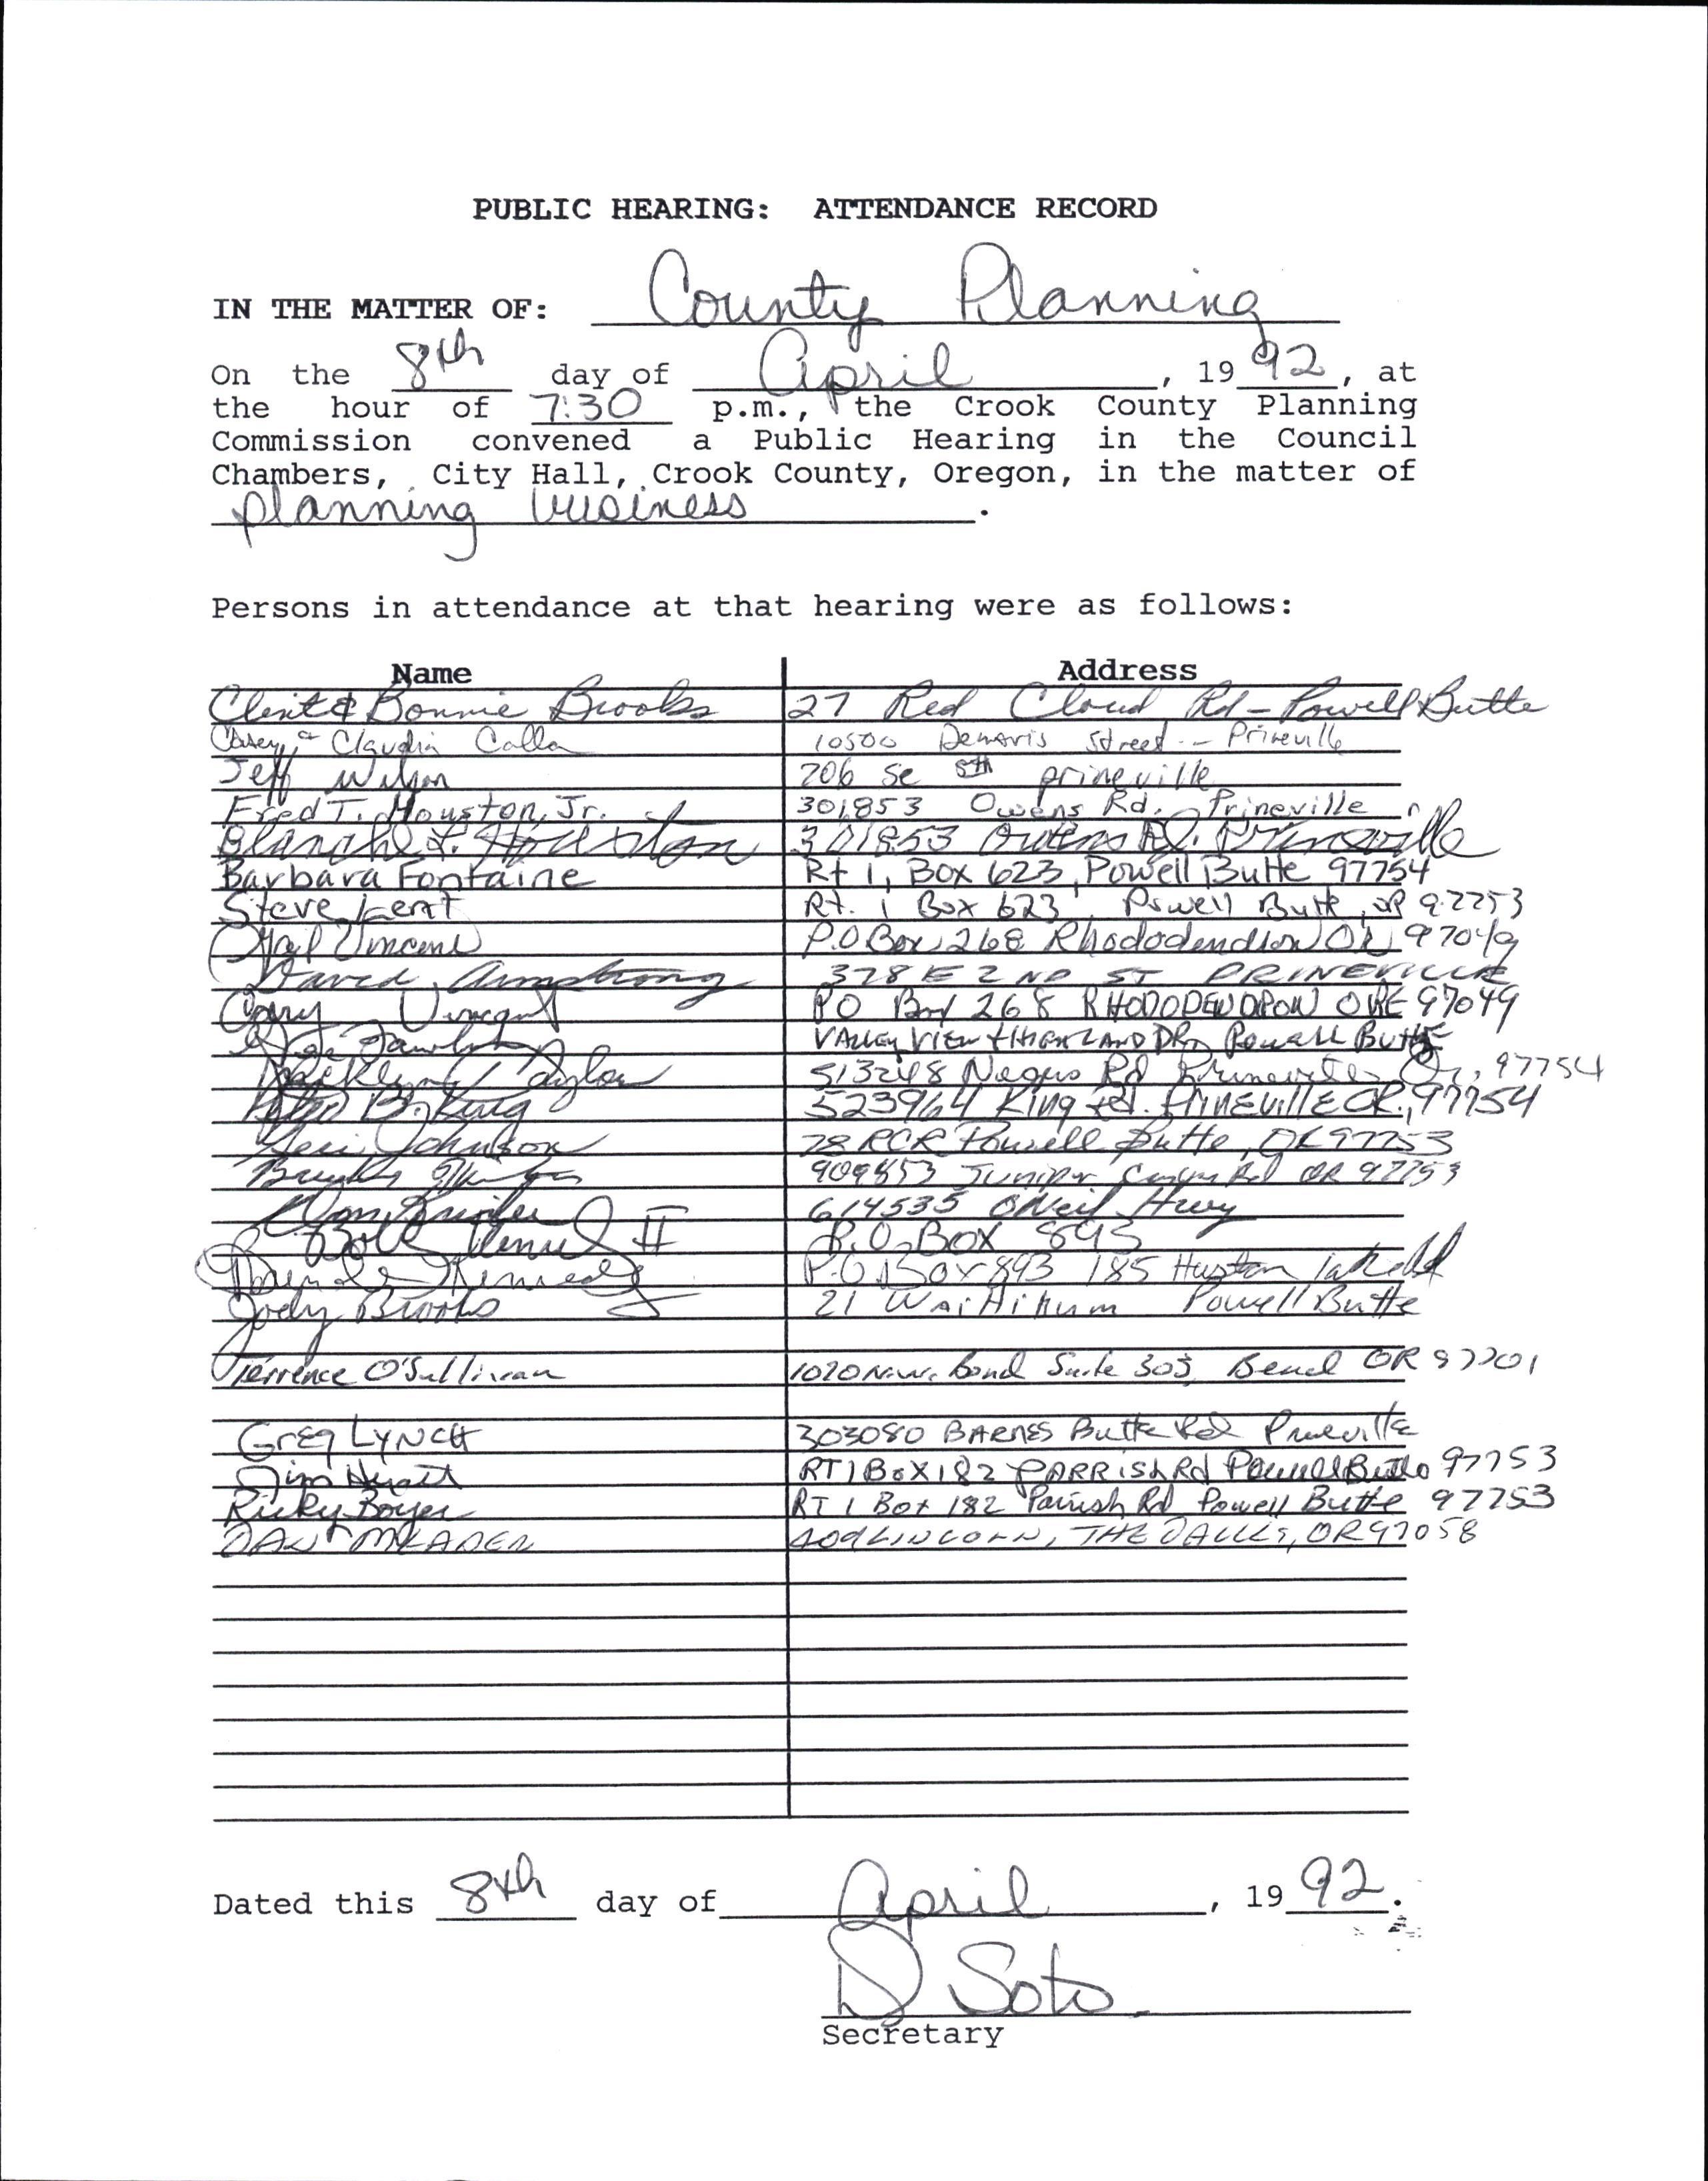 PUBLIC HEARING: ATTENDANCE RECORD
IN THE MATTER OF: County Planning
On the 8th day of April, 1992, at
the hour of 7:30 p.m., the Crook County Planning
Commission convened a Public Hearing in the Council
Chambers, City Hall, Crook County, Oregon, in the matter of
planning business.
Persons in attendance at that hearing were as follows:
Name Address
Clint & Bonnie Brooks 27 Red Cloud Rd - Powell Butte
Casey & Claudia Calla 10500 Demaris Street - Prineville
Jeff Wilson 206 SE 5th prineville
Fred T. Houston, Jr. 301853 Owens Rd. Prineville
Blanche L. Houston 301853 Owens Rd. Prineville
Barbara Fontaine Rt 1, Box 623, Powell Butte 97754
Steve Lent Rt. 1 Box 623 Powell Butte, OR 97753
Vincent P.O Box 268 Rhododendron OR 97049
David Armstrong 378 E 2ND ST PRINEVILLE
Vincent PO Box 268 RHODODENDRON ORE 97049
VALLEY VIEW + HIGHLAND DR, Powell Butte
Taylor 513248 Negus Rd Prineville Or, 97754
B. King 523964 King Rd. PRINEVILLE OR., 97754
Geri Johnson 78 RCR Powell Butte, OR 97753
909853 Juniper Canyon Rd OR 97753
614535 ONeil Hwy
II P.O. Box 893
P.O. Box 893 185 Huston Lake Rd
Jody Brooks 21 Powell Butte
Terrence O'Sullivan 1020 N.W. Bond Suite 303, Bend OR 97701
Greg LYNCH 303080 BARNES Butte Rd Prineville
Jim RT 1 BOX 182 PARRISH Rd Powell Butte 97753
Ricky Boyer RT 1 Box 182 Parrish Rd Powell Butte 97753
DAN MEADER 409 LINCOLN, THE DALLES, OR 97058
Dated this 8th day of April, 1992.
D Soto
Secretary